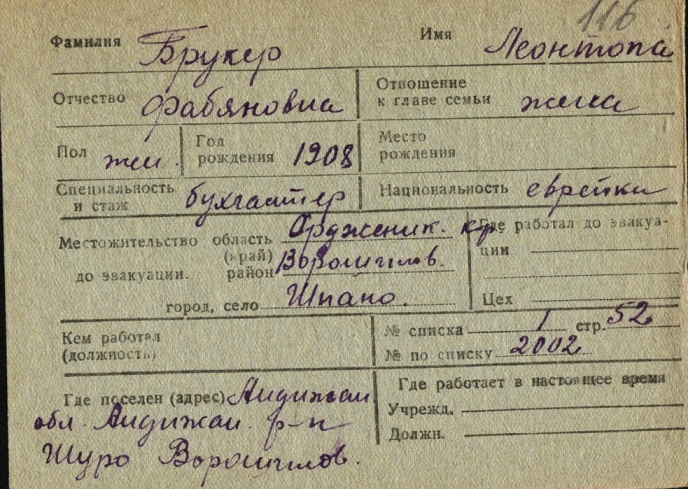 116
Фамилия Брукер Имя Леонтопа
Отчество Фабяновна Отношение к главе семьи жена
Пол жен. Год рождения 1908 Место рождения
Специальность и стаж бухгалтер Национальность еврейка
Местожительство область (край) Ордженик. кр. Где работал до эвакуации
до эвакуации. район Ворошилов.
город, село Шпано. Цех
Кем работал (должность) № списка 1 стр. 52
№ по списку 2002
Где поселен (адрес) Андижан Где работает в настоящее время
обл. Андижан. р-н Учрежд.
Шуро Ворошилов. Должн.